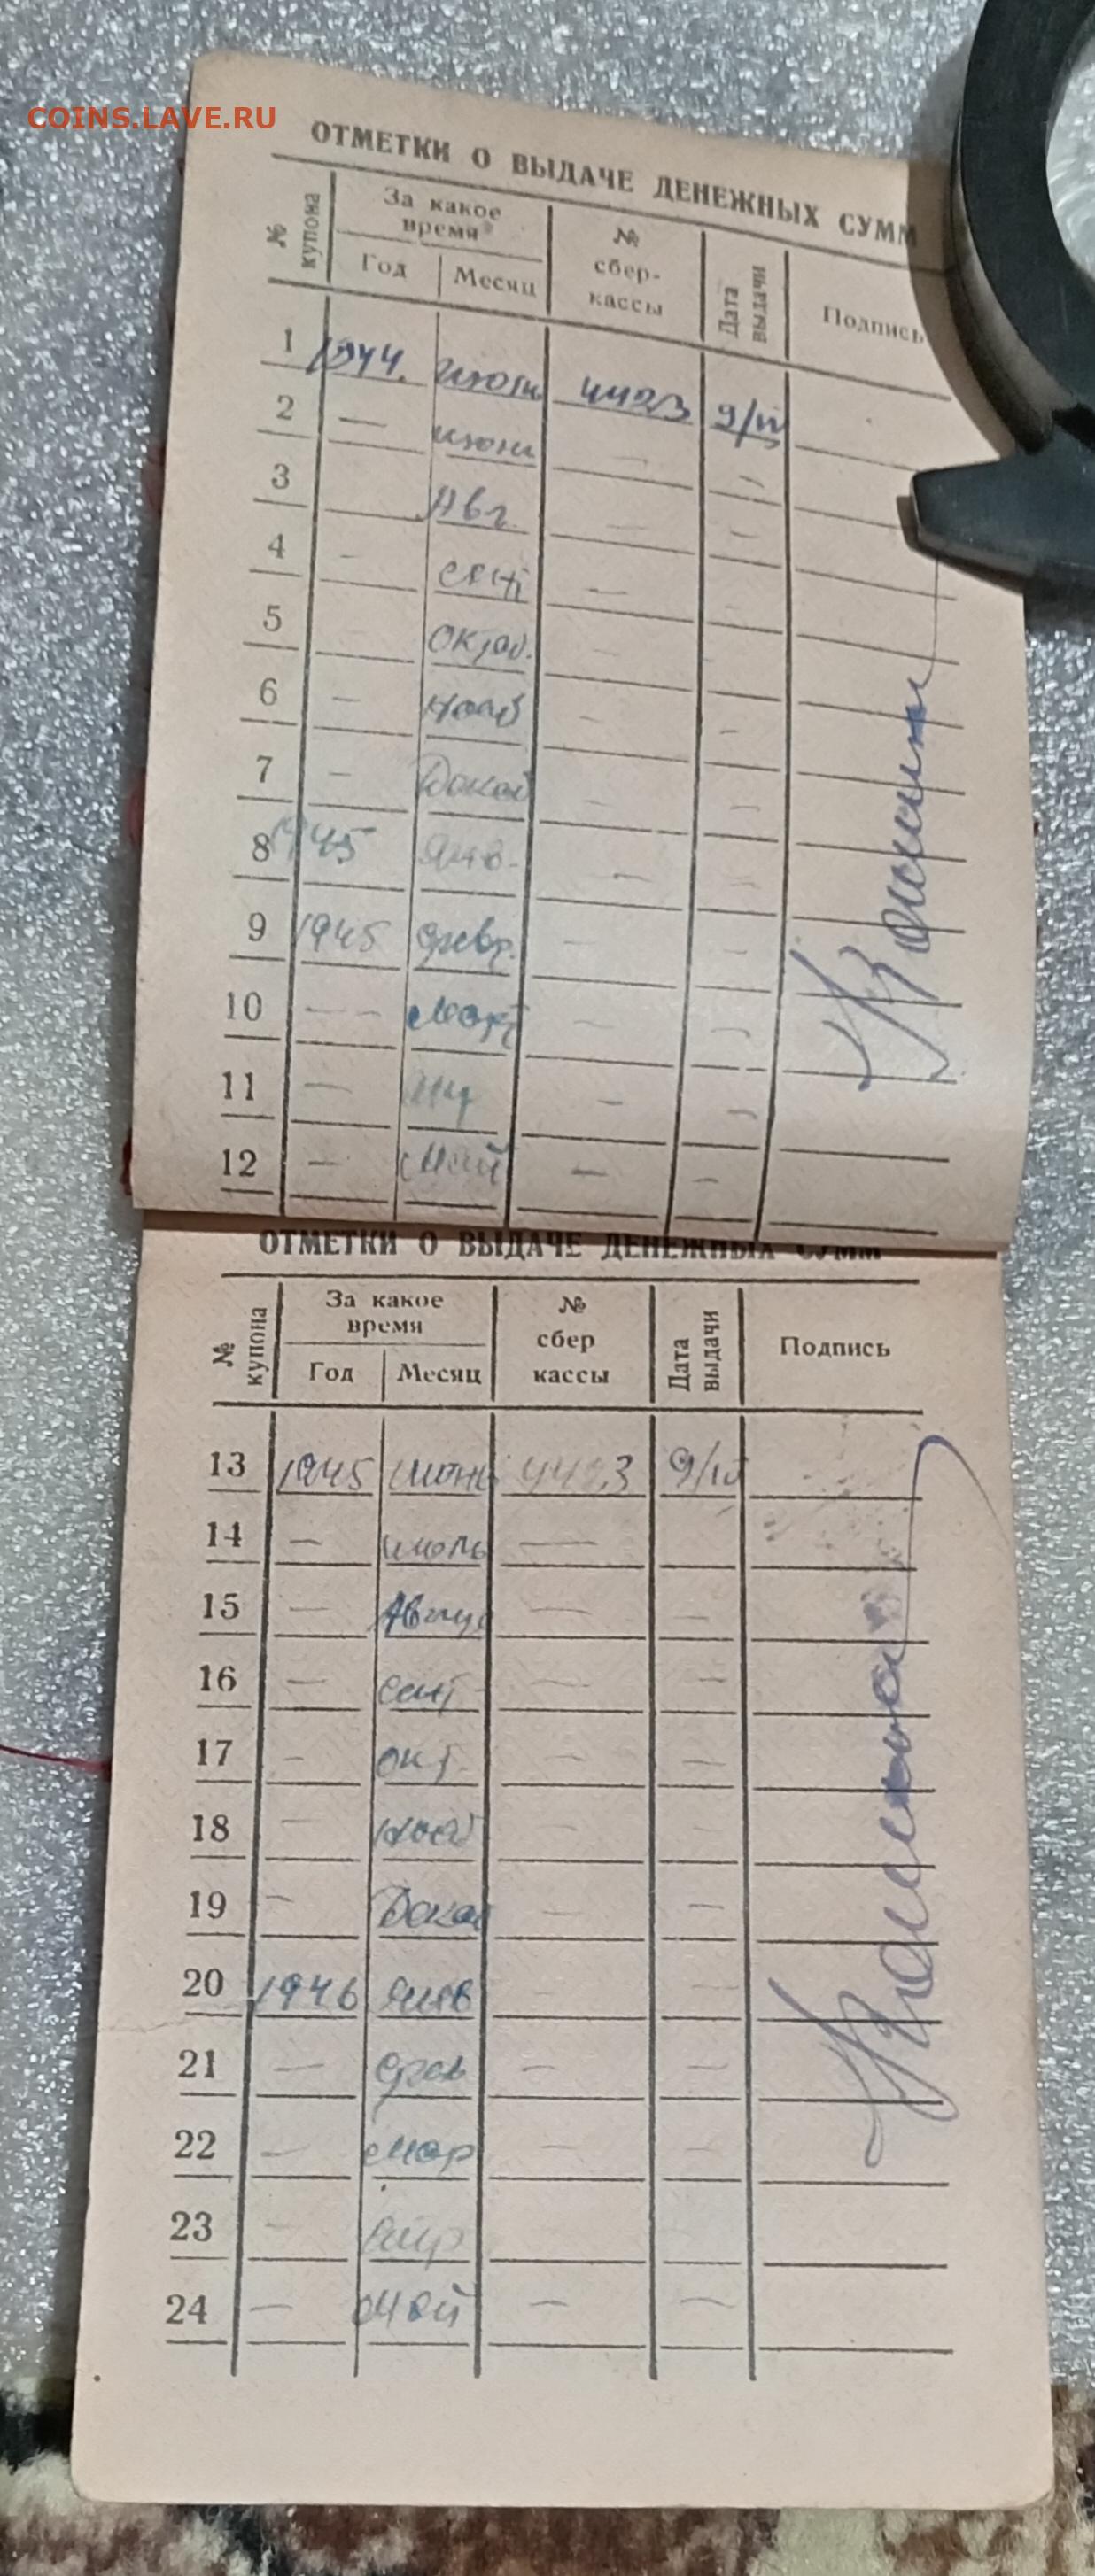 COINS.LAVE.RU
ОТМЕТКИ О ВЫДАЧЕ ДЕНЕЖНЫХ СУММ
№ купона
За какое время
Год
Месяц
№ сбер-кассы
Дата выдачи
Подпись
1 1944. 4423
2 —
3 Авг.
4 — сент
5 — октяб.
6 — нояб
7 —
8 1945 Янв.
9 1945 февр.
10 — Март
11 —
12 — Май
ОТМЕТКИ О ВЫДАЧЕ ДЕНЕЖНЫХ СУММ
№ купона
За какое время
Год
Месяц
№ сбер кассы
Дата выдачи
Подпись
13 1945 июнь 4423
14 — июль —
15 — Авгус — —
16 — сент — —
17 — окт. — —
18 — нояб — —
19 — — —
20 1946 янв — —
21 — фев — —
22 — мар — —
23 — апр
24 — май — —